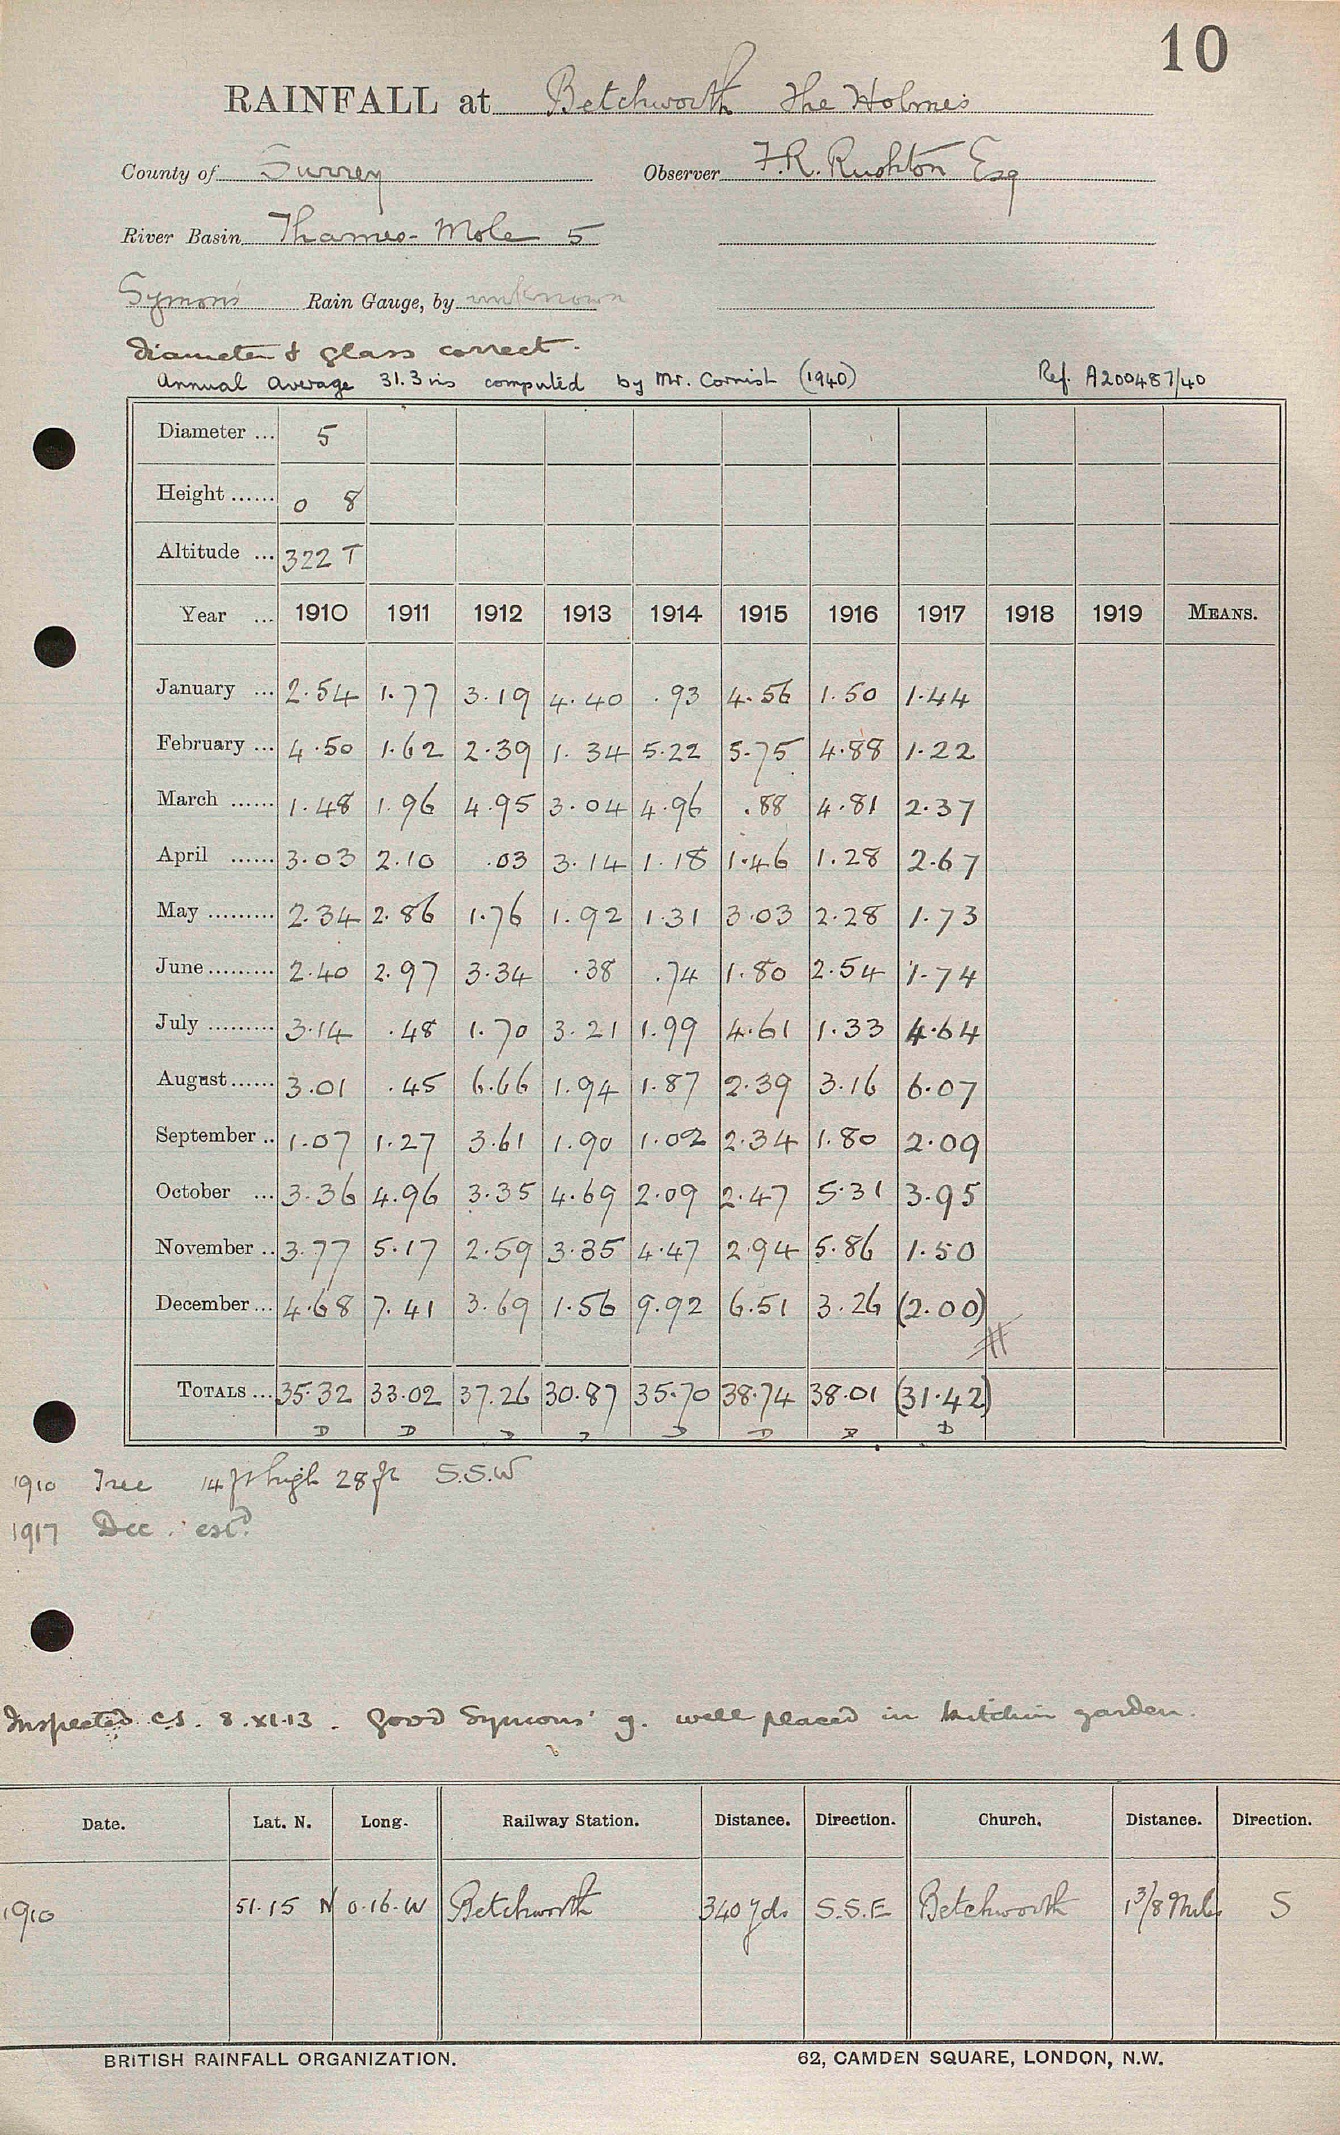 10
RAINFALL at Betchworth The Holmes
County of Surrey Observer F.R. Rushton Esq
River Basin Thames - Mole 5
Symons Rain Gauge, by unknown
Diameter & glass correct.
Annual average 31.3 ins computed by Mr. Cornish (1940) Ref. A200487/40
Diameter ... 5
Height ...... 0 8
Altitude ... 322 T
Year ... 1910 1911 1912 1913 1914 1915 1916 1917 1918 1919 MEANS.
January ... 2.54 1.77 3.19 4.40 .93 4.56 1.50 1.44
February ... 4.50 1.62 2.39 1.34 5.22 5.75 4.88 1.22
March ...... 1.48 1.96 4.95 3.04 4.96 .88 4.81 2.37
April ...... 3.03 2.10 .03 3.14 1.18 1.46 1.28 2.67
May ......... 2.34 2.86 1.76 1.92 1.31 3.03 2.28 1.73
June ......... 2.40 2.97 3.34 .38 .74 1.80 2.54 1.74
July ......... 3.14 .48 1.70 3.21 1.99 4.61 1.33 4.64
August ...... 3.01 .45 6.66 1.94 1.87 2.39 3.16 6.07
September .. 1.07 1.27 3.61 1.90 1.02 2.34 1.80 2.09
October ... 3.36 4.96 3.35 4.69 2.09 2.47 5.31 3.95
November .. 3.77 5.17 2.59 3.35 4.47 2.94 5.86 1.50
December ... 4.68 7.41 3.69 1.56 9.92 6.51 3.26 (2.00)
#
TOTALS ... 35.32 33.02 37.26 30.87 35.70 38.74 38.01 (31.42)
D D D D D D D D
1910 Tree 14 ft high 28 ft S.S.W
1917 Dec. estd.
Inspected C.S. 8.XI.13. Good Symons' g. well placed in kitchin garden.
Date. Lat. N. Long. Railway Station. Distance. Direction. Church. Distance. Direction.
1910 51.15 N 0.16.W Betchworth 340 yds S.S.E Betchworth 1 3/8 Miles S
BRITISH RAINFALL ORGANIZATION. 62, CAMDEN SQUARE, LONDON, N.W.